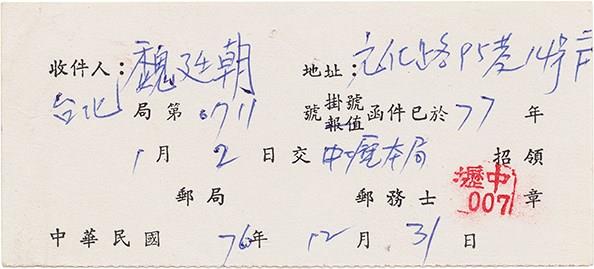 收件人：魏廷朝 地址：元化路95巷14号
台北局第0711號掛號報值函件已於77年
1月2日交中壢本局招領
郵局 郵務士 章
中壢
007
中華民國76年12月31日